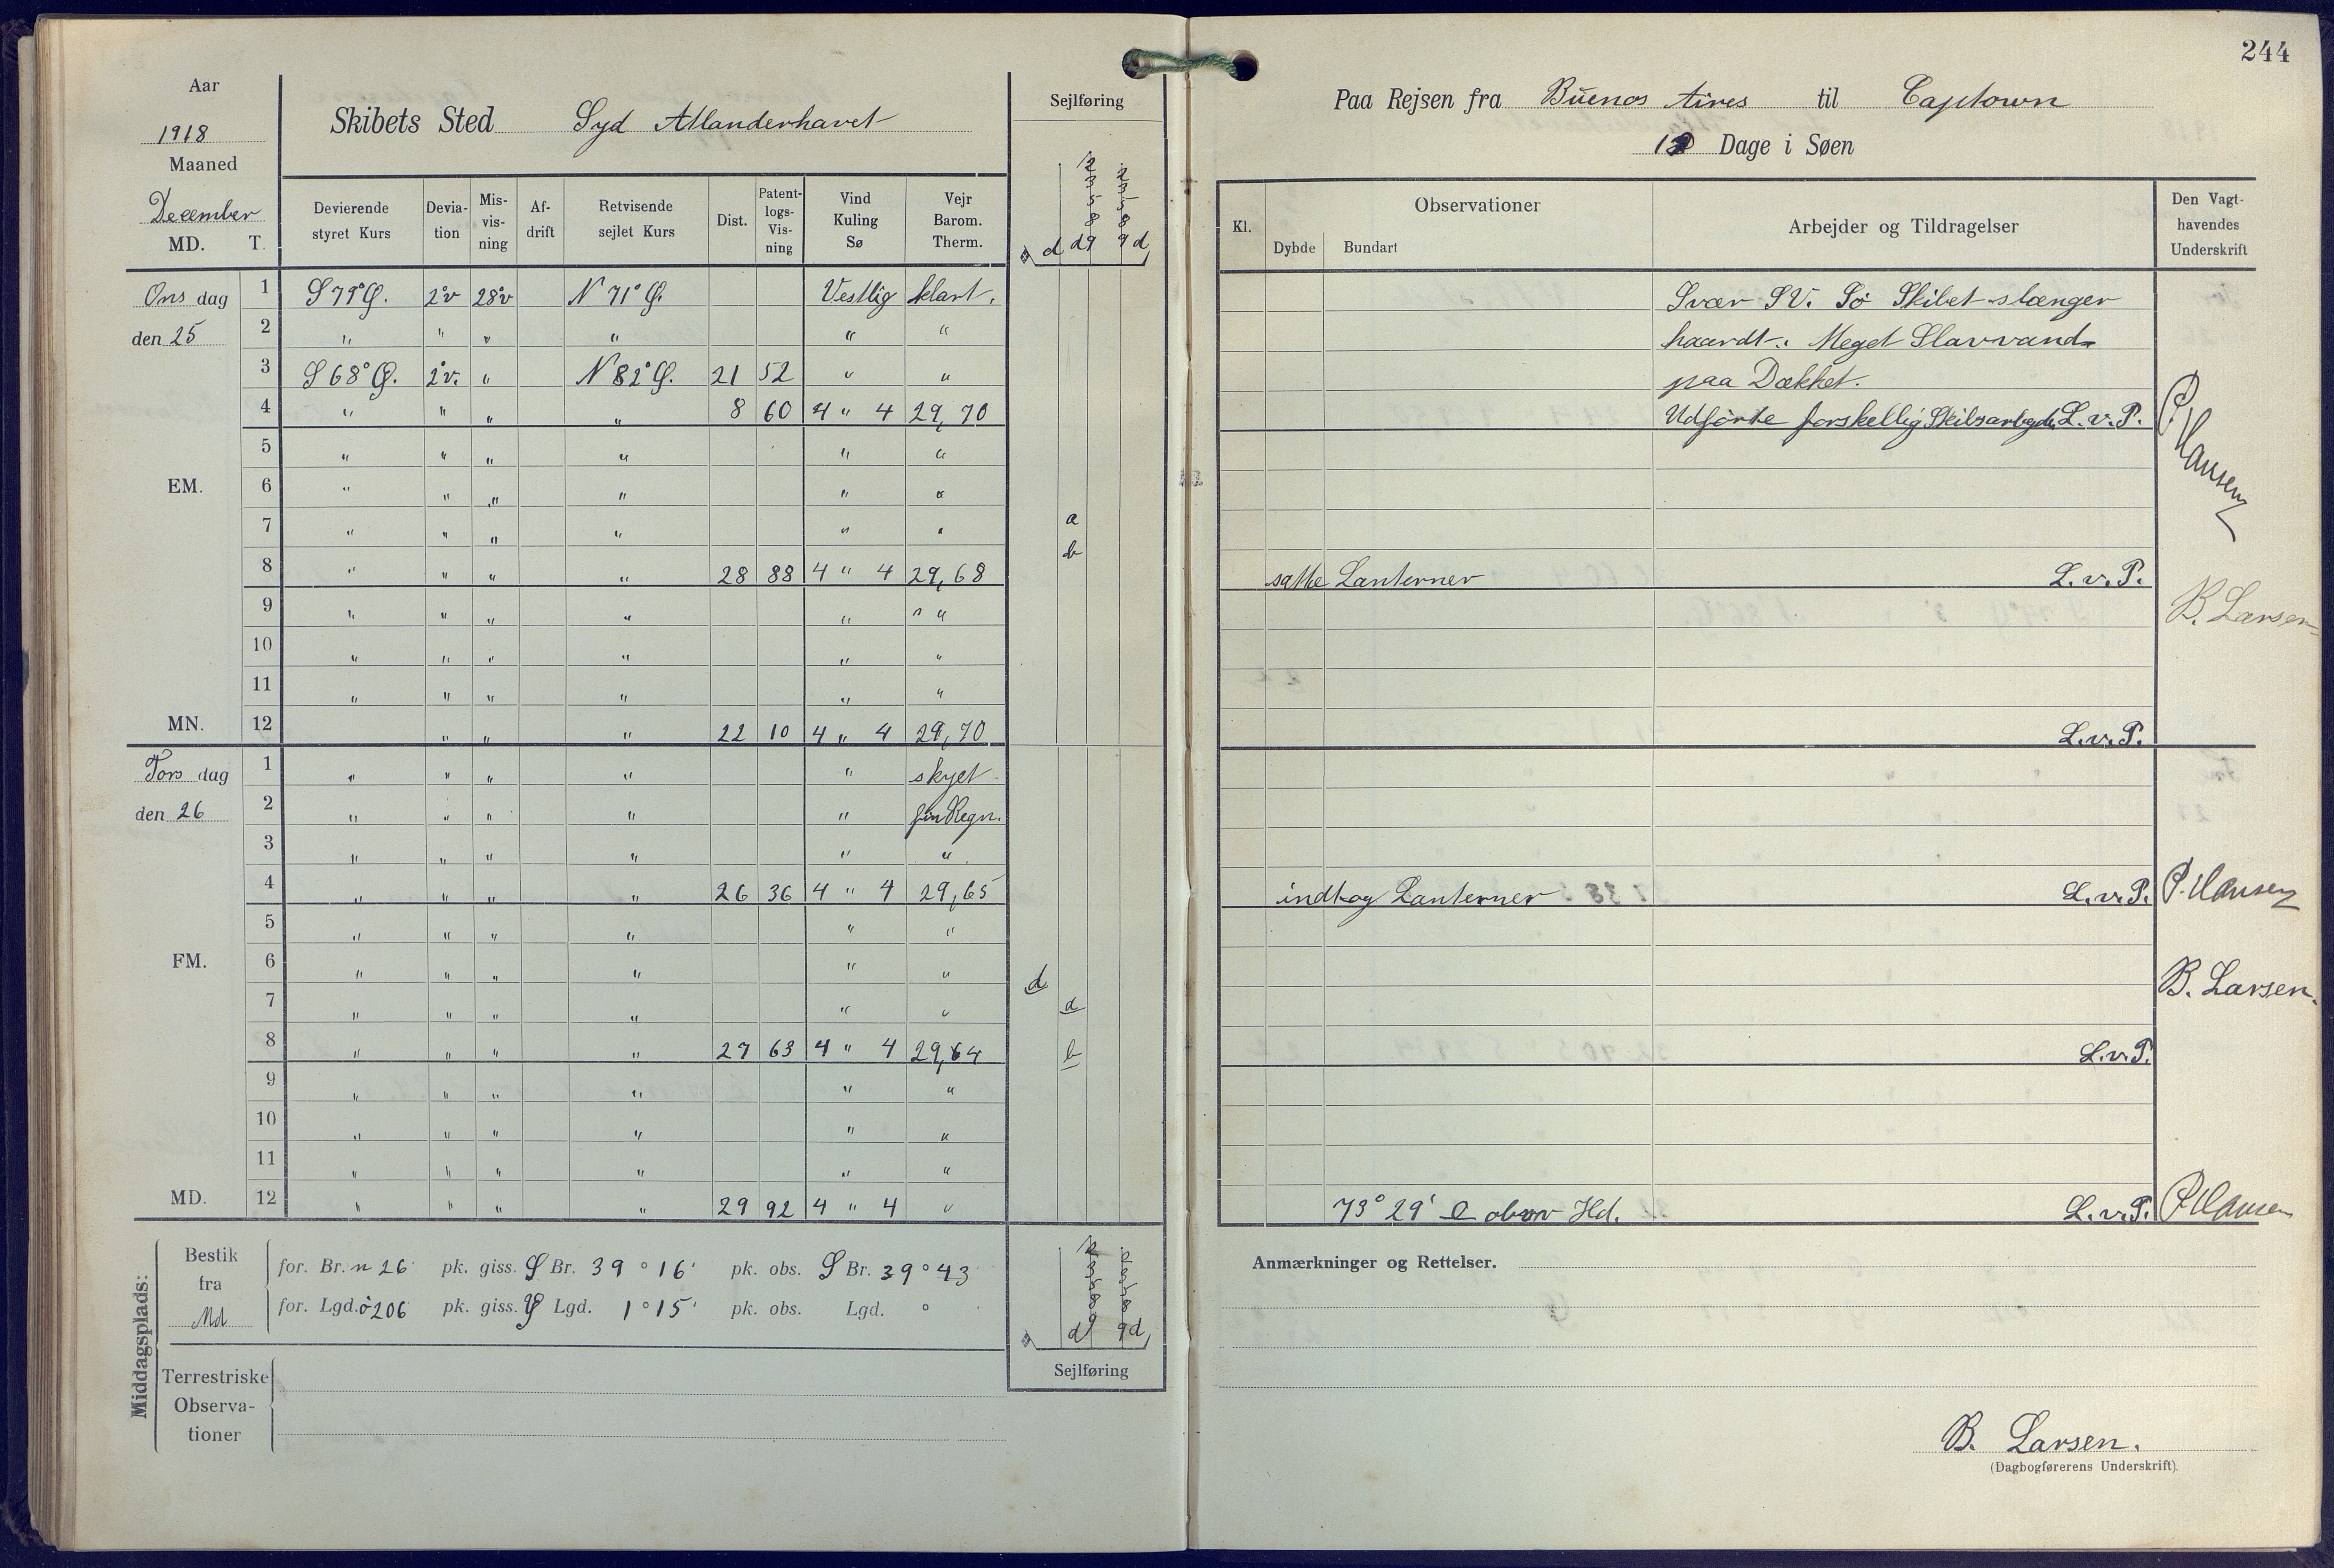 244
Aar
1918
Maaned
December
MD. T.
Skibets Sted Syd Atlanderhavet
Sejlføring
Paa Rejsen fra Buenos Aires til Captown
Dage i Søen
Devierende styret Kurs
Devia-tion
Mis-vis-ning
Af-drift
Retvisende sejlet Kurs
Dist.
Patent-logs-Vis-ning
Vind Kuling Sø
Vejr Barom. Therm.
Kl.
Observationer
Dybde Bundart
Arbejder og Tildragelser
Den Vagt-havendes Underskrift
Ons dag 1 S 79° Ø. 2°v 28°v N 71° Ø. Vestlig klart. Svær SV. Sø Skibet slænger
den 25 2 " " " " " " haardt. Meget Slavvand
3 S 68° Ø. 2°v. " N 82° Ø. 21 52 " " paa Dækket.
4 " " " " 8 60 4 " 4 29,70 Udførte forskellig Skibsarbejde L. v. P. P. Hansen
5 " " " " " "
EM. 6 " " " " " "
7 " " " " " " a
8 " " " " 28 88 4 " 4 29,68 b satte Lanterner L. v. P.
9 " " " " " " " B. Larsen
10 " " " " " "
11 " " " " " "
MN. 12 " " " 22 10 4 " 4 29,70 L. v. P.
Tors dag 1 " " " " " skyet
den 26 2 " " " " " fin Regn.
3 " " " " " "
4 " " " " 26 36 4 " 4 29,65 indtog Lanterner L. v. P. P. Hansen
5 " " " " " "
FM. 6 " " " " " " d B. Larsen.
7 " " " " " "
8 " " " " 27 63 4 " 4 29,64 b L. v. P.
9 " " " " " "
10 " " " " " "
11 " " " " " "
MD. 12 " " " " 29 92 4 " 4 " 73° 29' obsv Hd. L. v. P. P Hansen
Middagsplads:
Bestik fra Md
for. Br. n 26' pk. giss. S Br. 39° 16' pk. obs. S Br. 39° 43
for. Lgd. ö 206 pk. giss. Lgd. 1° 15' pk. obs. Lgd. °
Terrestriske Observa-tioner
Sejlføring
Anmærkninger og Rettelser.
B. Larsen.
(Dagbogførerens Underskrift).